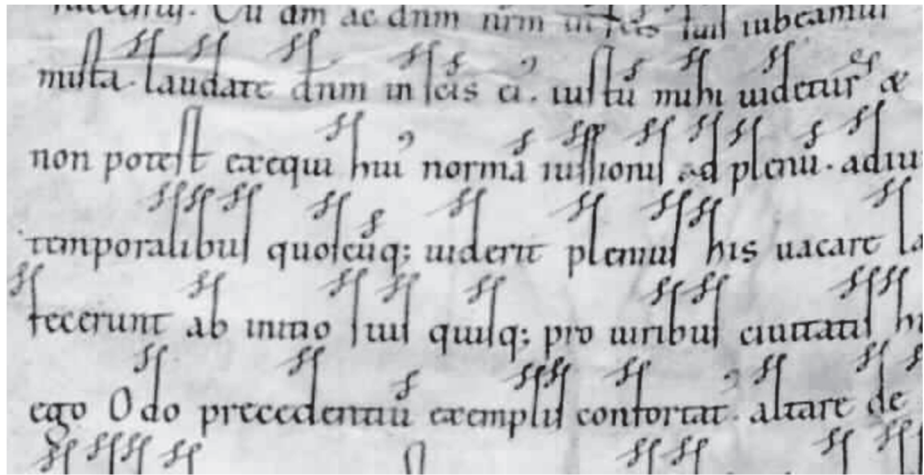 Cū om ac dnm nrm in scis suis iubeamur
missa. laudare dnm in scis ei. iustū mihi uidetur &
non potest exequi hui' normā iussionis ad plenū. adiu
temporalibus quoscūq; uiderit plenius his uacare la
fecerunt ab initio sui quisq; pro uiribus ciuitatis hi
ego Odo precedentiū exemplis confortat. altare de